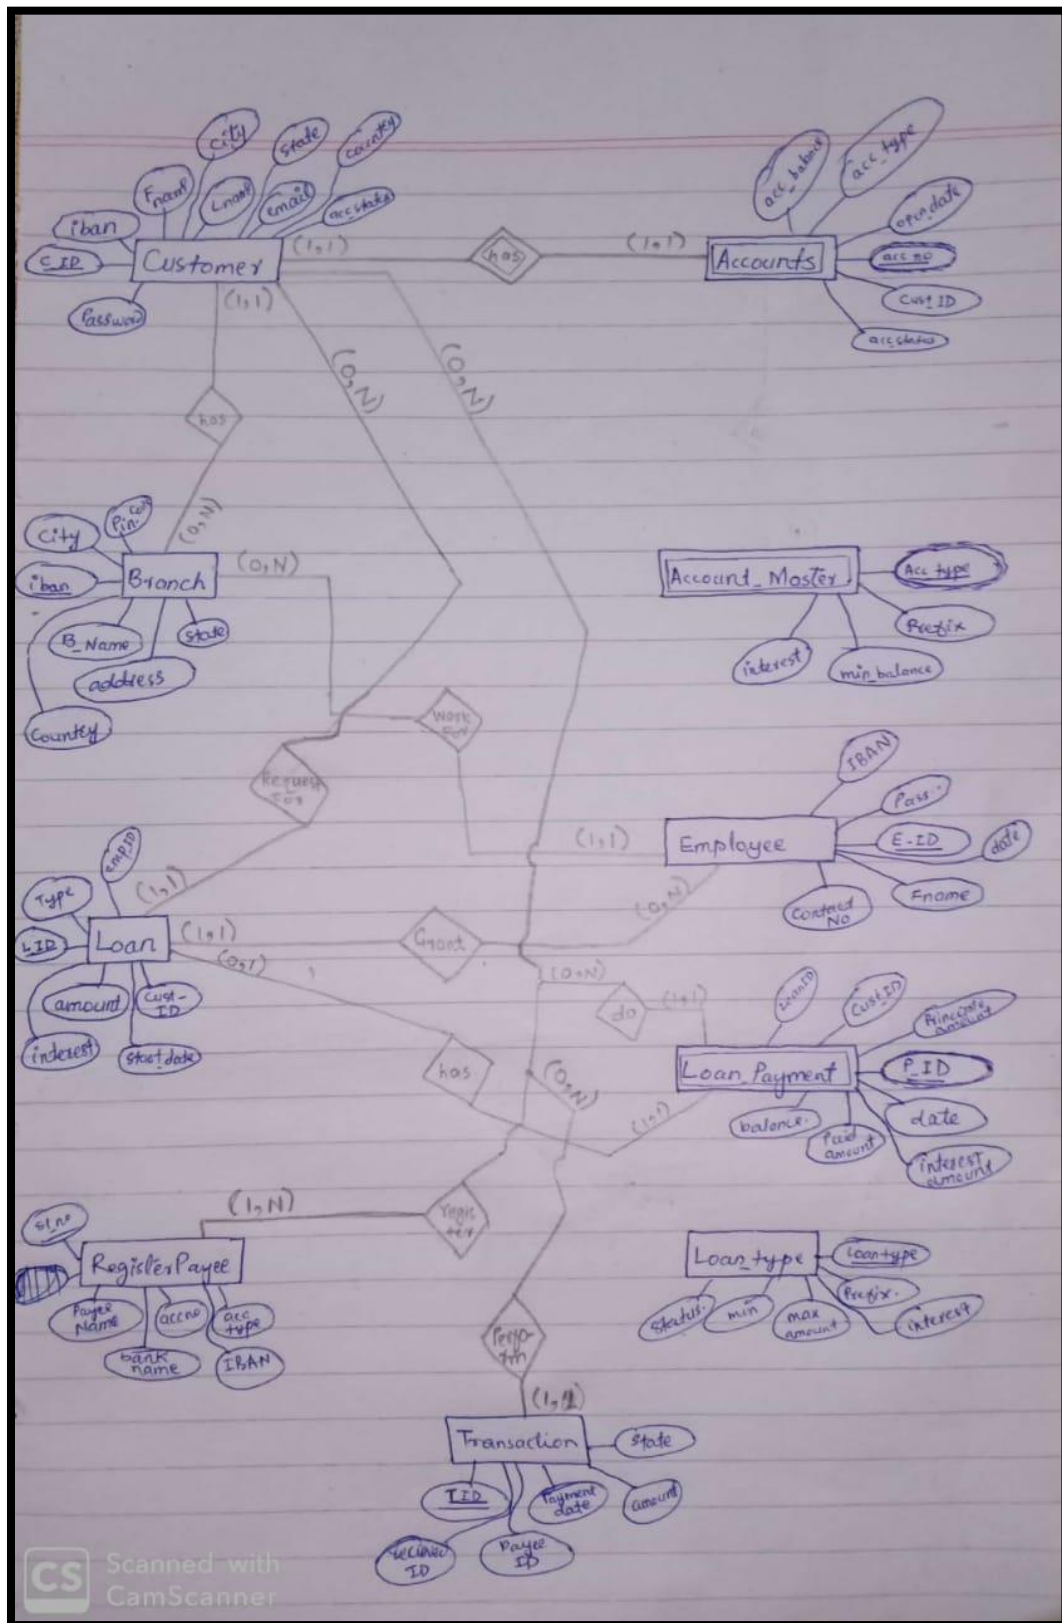 City
state
country
Fname
Lname
email
acc.status
iban
C_ID
Customer
Password
(1,1)
has
(1,1)
acc_balance
acc_type
open_date
Accounts
acc no
Cust_ID
acc_status
(1,1)
(0,N)
(0,N)
has
(0,N)
City
iban
Branch
(0,N)
B_Name
state
address
Country
Account_Master
Acc_type
Prefix
interest
min_balance
Work
For
Request
For
IBAN
Pass.
E-ID
date
Employee
(1,1)
Fname
Contact
No
emp_ID
Type
(1,1)
(0,N)
L_ID
Loan
(1,1)
Grant
(0,1)
amount
Cust-
ID
interest
start_date
(0,N)
do
(1,1)
LoanID
Cust.ID
amount
P_ID
Loan_Payment
has
(0,N)
(1,1)
balance.
Paid
amount
date
interest
amount
(1,N)
regis
ter
RegisterPayee
Payee
Name
accno
acc
type
bank
name
IBAN
Loan_type
Loantype
Prefix.
interest
status.
min
max
amount
Transaction
state
T_ID
Payment
date
amount
ID
Payee
ID
CS
Scanned with
CamScanner